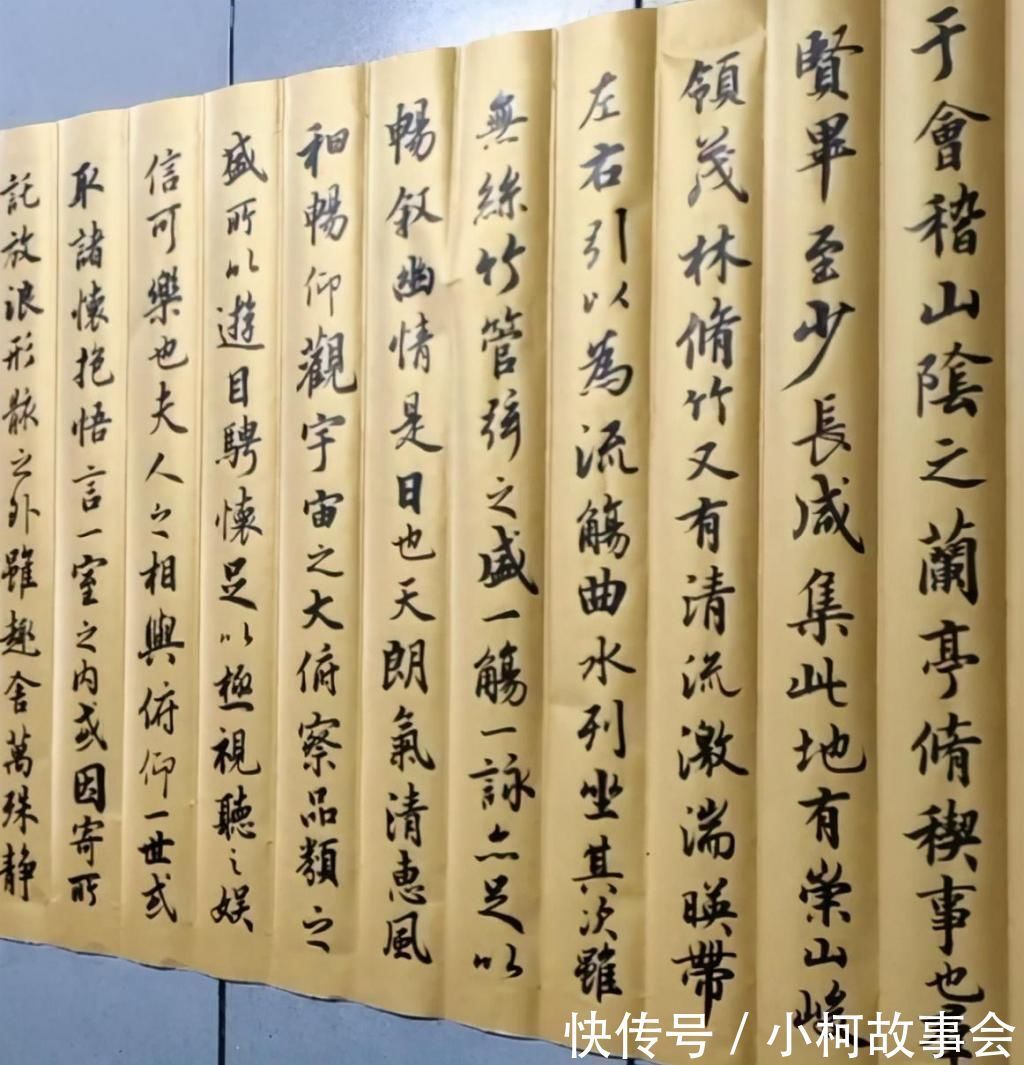 于會稽山陰之蘭亭脩稧事也
賢畢至少長咸集此地有崇山峻
領茂林脩竹又有清流激湍暎帶
左右引以為流觴曲水列坐其次雖
無絲竹管弦之盛一觴一詠亦足以
暢敘幽情是日也天朗氣清惠風
和暢仰觀宇宙之大俯察品類之
盛所以遊目騁懷足以極視聽之娛
信可樂也夫人之相與俯仰一世或
取諸懷抱悟言一室之內或因寄所
託放浪形骸之外雖趣舍萬殊靜
快传号 / 小柯故事会